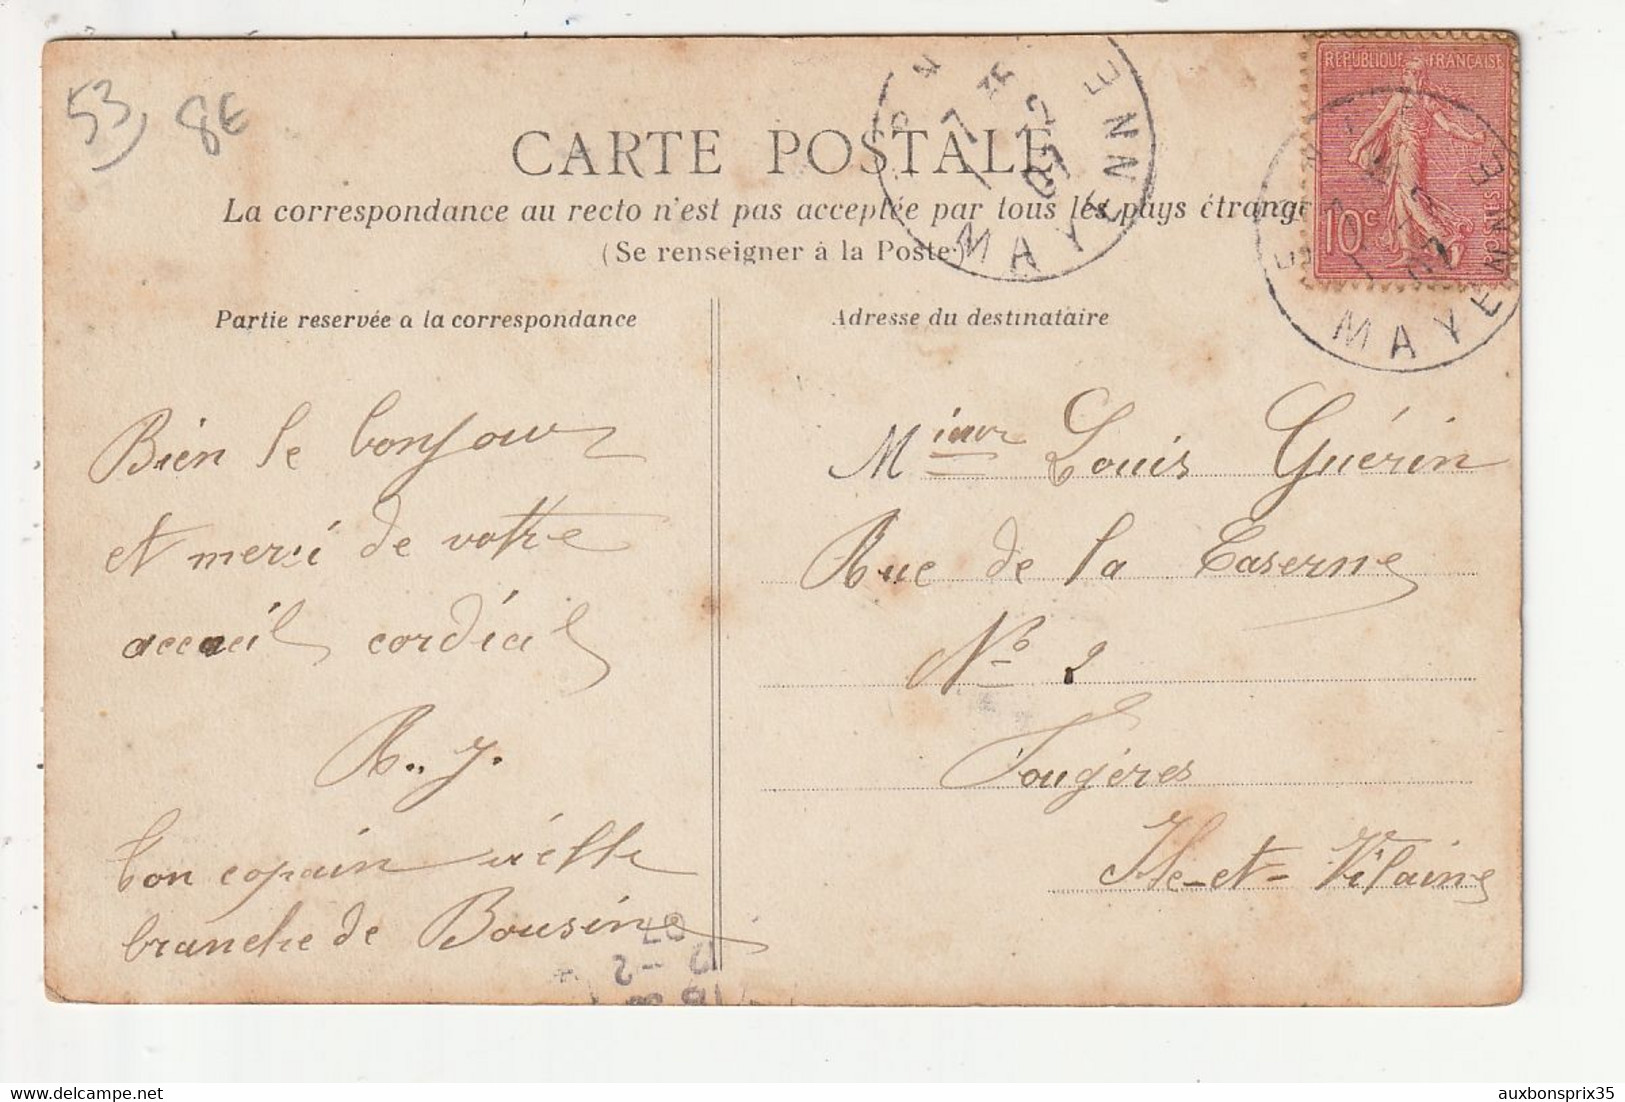 53
8E
CARTE POSTALE
La correspondance au recto n'est pas acceptée par tous les pays étrang
(Se renseigner à la Poste)
REPUBLIQUE FRANÇAISE
10c
MAYENNE
07
MAYENNE
Partie reservée a la correspondance
Bien le bonjour
et merci de votre
accueil cordial
R.. J.
bon copain vielle
branche de Bousine
Adresse du destinataire
Louis Guérin
Rue de la Caserne
No 2
Fougères
Ile-et-Vilaine
07
-2
auxbonsprix35
www.delcampe.net